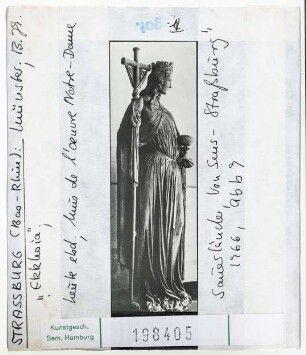 STRASSBURG (Bas-Rhin): Münster, 13. Jh.
"Ekklesia";
heute ebd., Mus. de l'oeuvre Notre-Dame
Sauerländer Von Sens - Straßburg"
1966, Abb 9
Kunstgesch.
Sem. Hamburg
198405